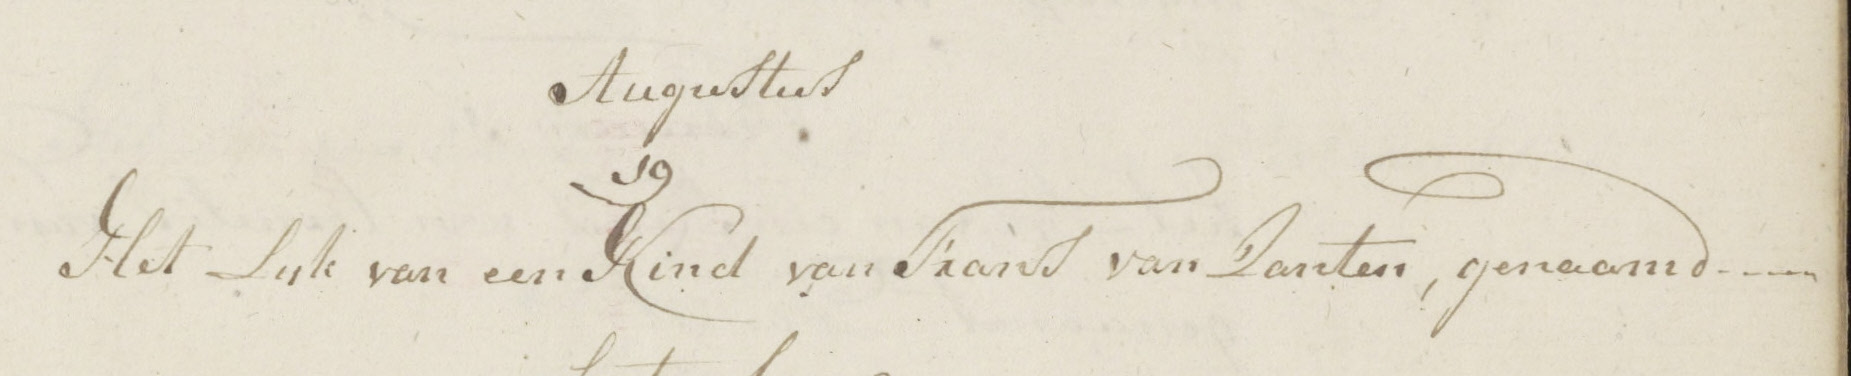 Augustus
19
Het Lijk van een Kind van Frans van Zanten, genaamd